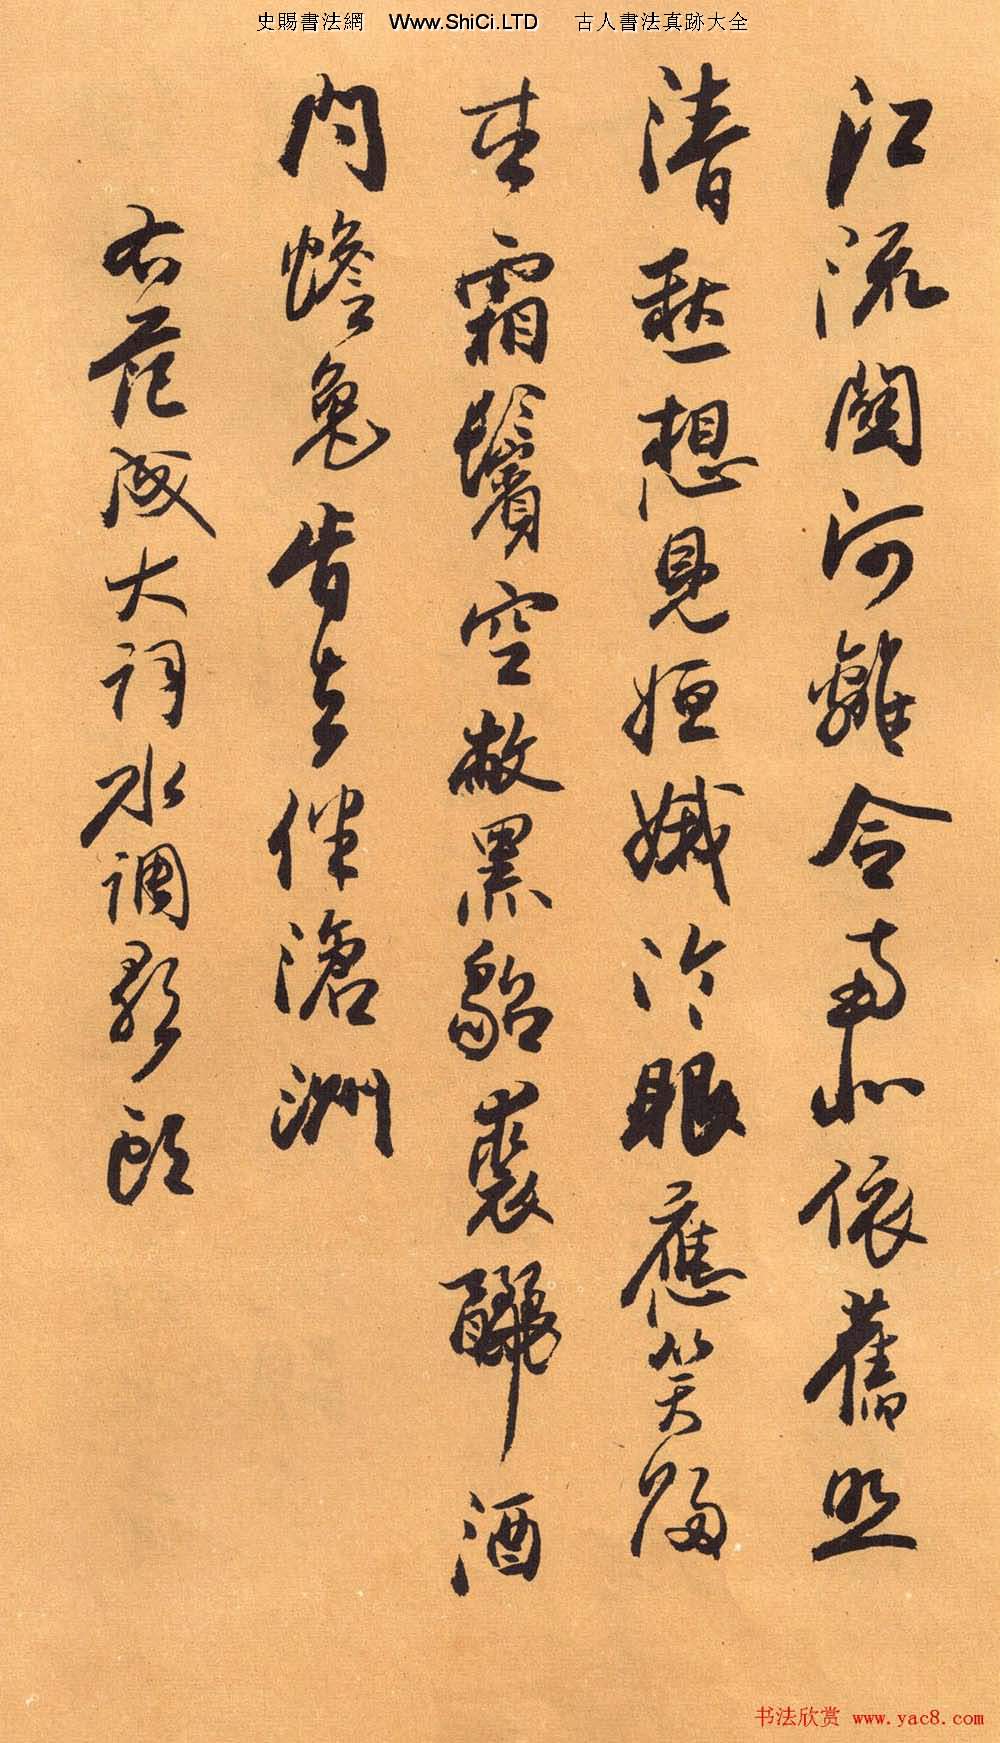 史賜書法網 Www.ShiCi.LTD 古人書法真跡大全
江流關河離合南北依舊照
清愁想見姮娥冷眼應笑歸
來霜鬢空敝黑貂裘釃酒
問蟾兔肯去伴滄洲
右范成大詞水調歌頭
书法欣赏 www.yac8.com